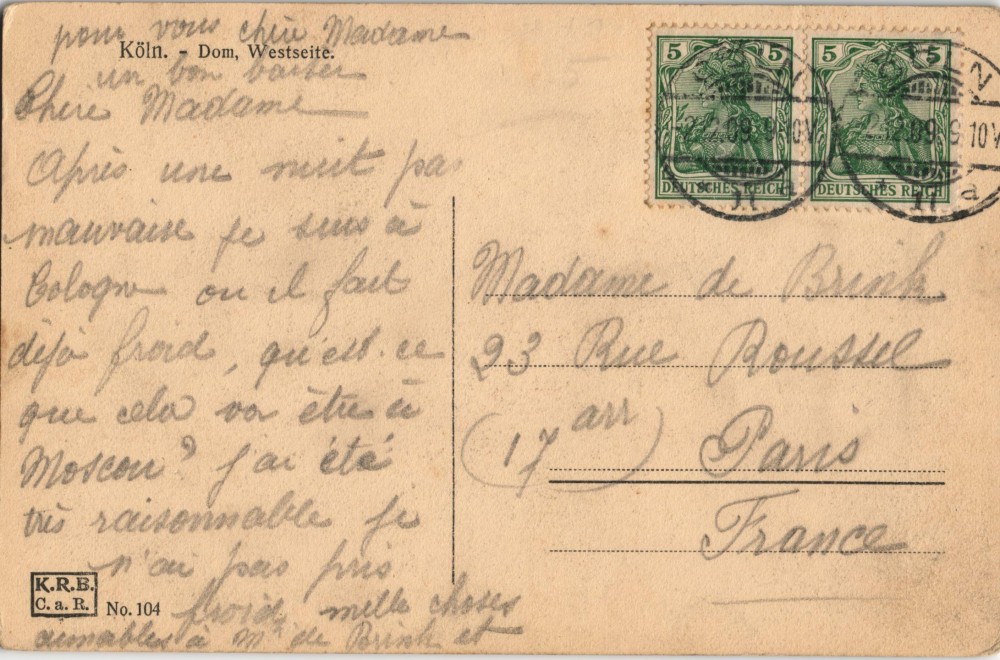 pour vous chère Madame
Köln. - Dom, Westseite.
un bon baiser
Chère Madame
Après une nuit pas
mauvaise je suis à
Cologne ou il fait
déjà froid, qu'est-ce
que cela va être à
Moscou? j'ai été
très raisonnable je
n'ai pas pris
froid, mille choses
aimables à Mr de Brink et
K.R.B.
C.a.R.
No. 104
5 5
5 5
DEUTSCHES REICH
DEUTSCHES REICH
09 9-10V
09 9-10V
a
Madame de Brink
23 Rue Roussel
(17 arr)
Paris
France